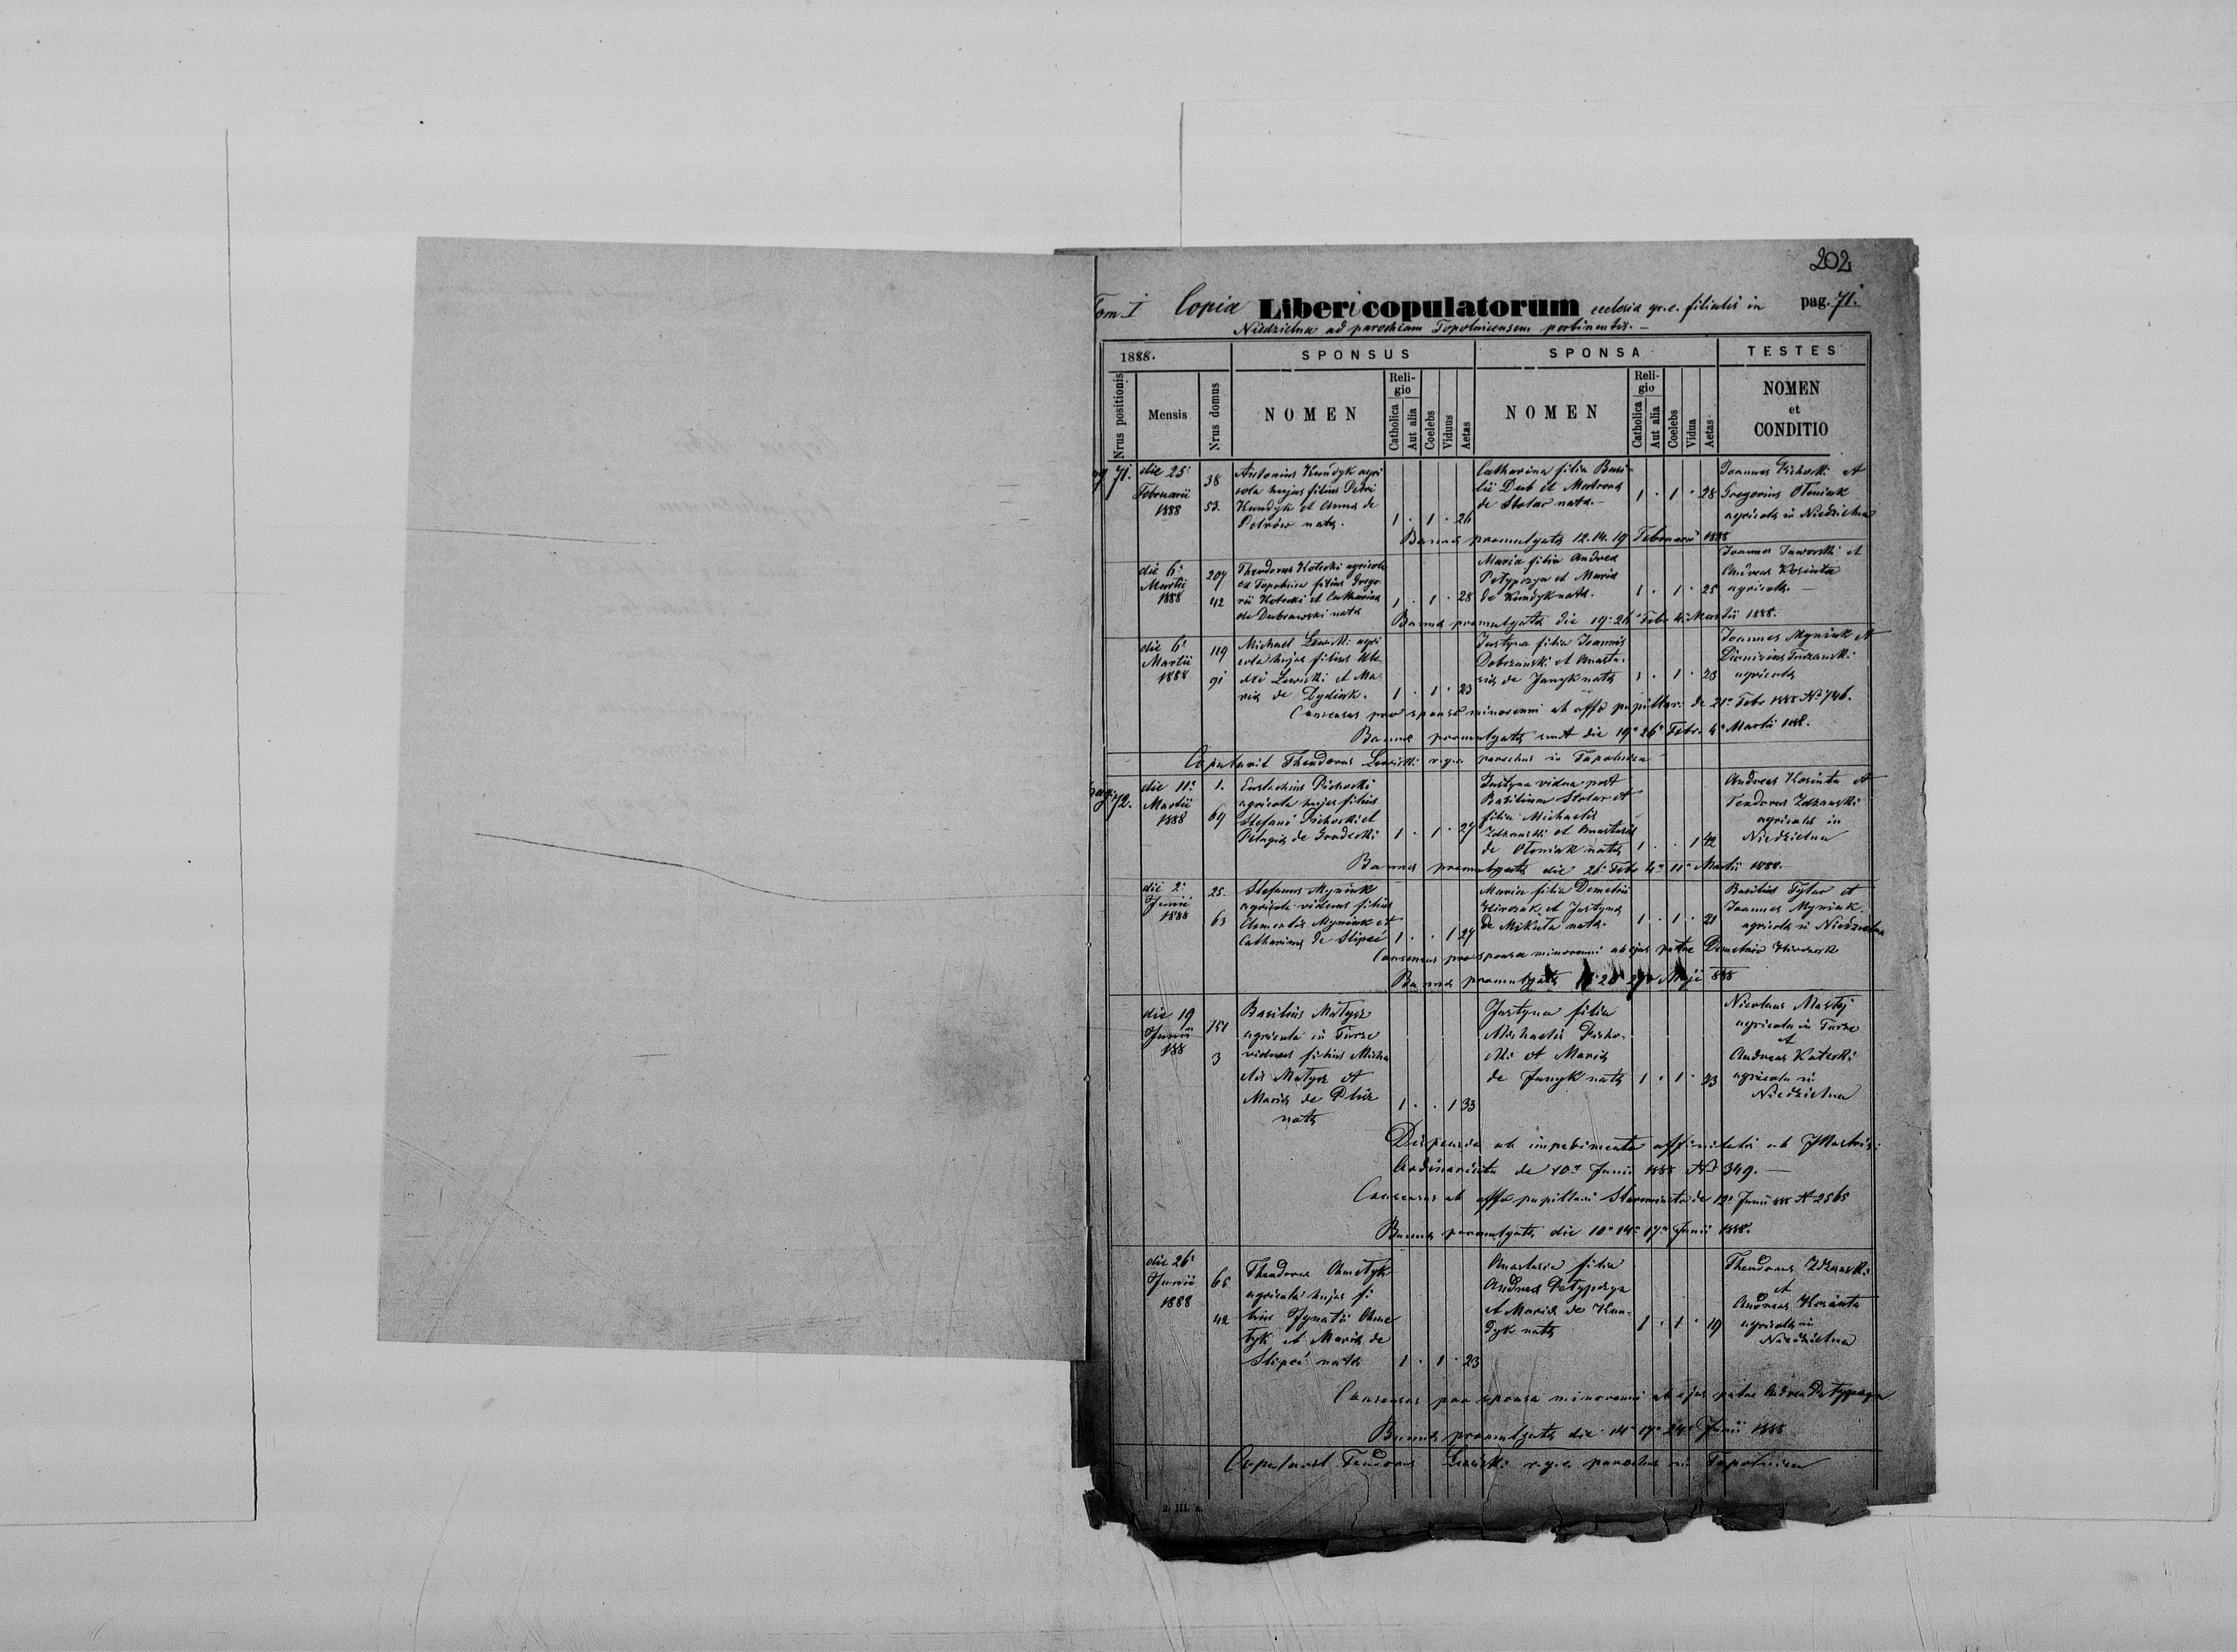 202
Tom. I Copia Liberi copulatorum ecclesia gr. c. filialis in pag. 71.
Niedzielna ad parochiam Topolnicensem pertinentis. —
1888. SPONSUS SPONSA TESTES
Nrus positionis Mensis Nrus domus NOMEN Religio Catholica Aut alia Coelebs Viduus Aetas NOMEN Religio Catholica Aut alia Coelebs Vidua Aetas NOMEN et CONDITIO
71. die 25 Februarii 1888
38
53.
Antonius Kundyk agri
cola hujas filius Petri
Kundyk et Anna de
Petrów nata.
1 . 1 . 26
Catharina filia Basi
lii Dub et Matrona
de Stolar nata. —
1 . 1 . 28
Joannes Pichocki et
Gregorius Oleniak
agricola in Niedzielna
Banna promulgata 12. 14. 19 Februarii 1888
die 6 Martii 1888
207
42
Theodorus Kotecki agricola
ex Topolnica filius Grego
rii Kotecki et Catharina
de Dubrawski nata
1 . 1 . 28
Maria filia Andrea
Petypczya et Maria
de Kundyk nata.
1 . 1 . 25
Joannes Jaworski et
Andreas Kosinta
agricola. —
Banna promulgata die 19 26 Febr 4 Martii 1888.
die 6 Martii 1888
119
91
Michael Lewicki agri
cola hujas filius
Lewicki et Ma
ria de Dydiak.
1 . 1 . 23
Justyna filia Joannis
Dobrzanski et Anasta
sia de Janyk nata
1 . 1 . 23
Joannes Myniak et
Dionisius
agricola
Consensus pro sponso minorenni ab offo pupillari de 21 Febr 1888 No 746.
Banna promulgata sunt die 19 26 Febr 4 Martii 1888.
Copulavit Theodorus Lewicki r. g. c. parochus in Topolnica
pag. 72.
die 11 Martii 1888
1.
69
Eustachius Pichocki
agricola hujas filius
Stefani Pichocki et
Pelagia de Grodecki
1 . 1 . 27
Justyna vidua post
Basilium Stolar et
filia Michaelis
Zdzanski et Anastasia
de Oleniak nata
1 . . 1 42
Andreas Kosinta et
Teodorus Zdzanski
agricola in
Niedzielna
Banna promulgata die 26 Febr 4 11 Martii 1888.
die 2 Junii 1888
25.
63
Stefanus Myniak
agricola viduus filius
Clementis Myniak et
Catharina de Slipeć
1 . . 1 27
Maria filia Demetrii
et Justyna
de Mikuła nata.
1 . 1 . 21
Basilius Tytar et
Joannes Myniak.
agricola in Niedzielna
Consensus pro sponsa minorenni ab ejus patre Demetrio
Banna promulgata 20 27 Maji 888
die 19 Junii 188
151
3
Basilius Matysz
agricola in Turze
viduus filius Micha
elis Matysz et
Maria de
nata
1 . . 1 33
Justyna filia
Michaelis Picho
cki et Maria
de Janyk nata
1 . 1 . 23
Nicolaus
agricola in Turze
et
Andreas Kotecki
agricola in
Niedzielna
Dispensa ab impedimento affinitatis ab
Ordinariatu de 10 Junii 1888 No 349. —
Consensus ab offo pupillari de 12 Junii 888 No 2565
Banna promulgata die 10 14 17 Junii 1888.
die 26 Junii 1888
65
42
Theodorus Chmetyk
agricola hujas fi
lius Ignatii Chme
tyk et Maria de
Slipeć nata
1 . 1 . 23
Anastasia filia
Andrea Petypczya
et Maria de Kun
dyk nata
1 . 1 . 19
Theodorus Zdzanski
et
Andreas Kosinta
agricola in
Niedzielna
Consensus pro sponsa minorenni ab ejus patre Andrea Petypczya
Banna promulgata die 14 17 24 Junii 1888
Copulavit Teodorus Lewicki r. g. c. parochus in Topolnica
2. III. a.